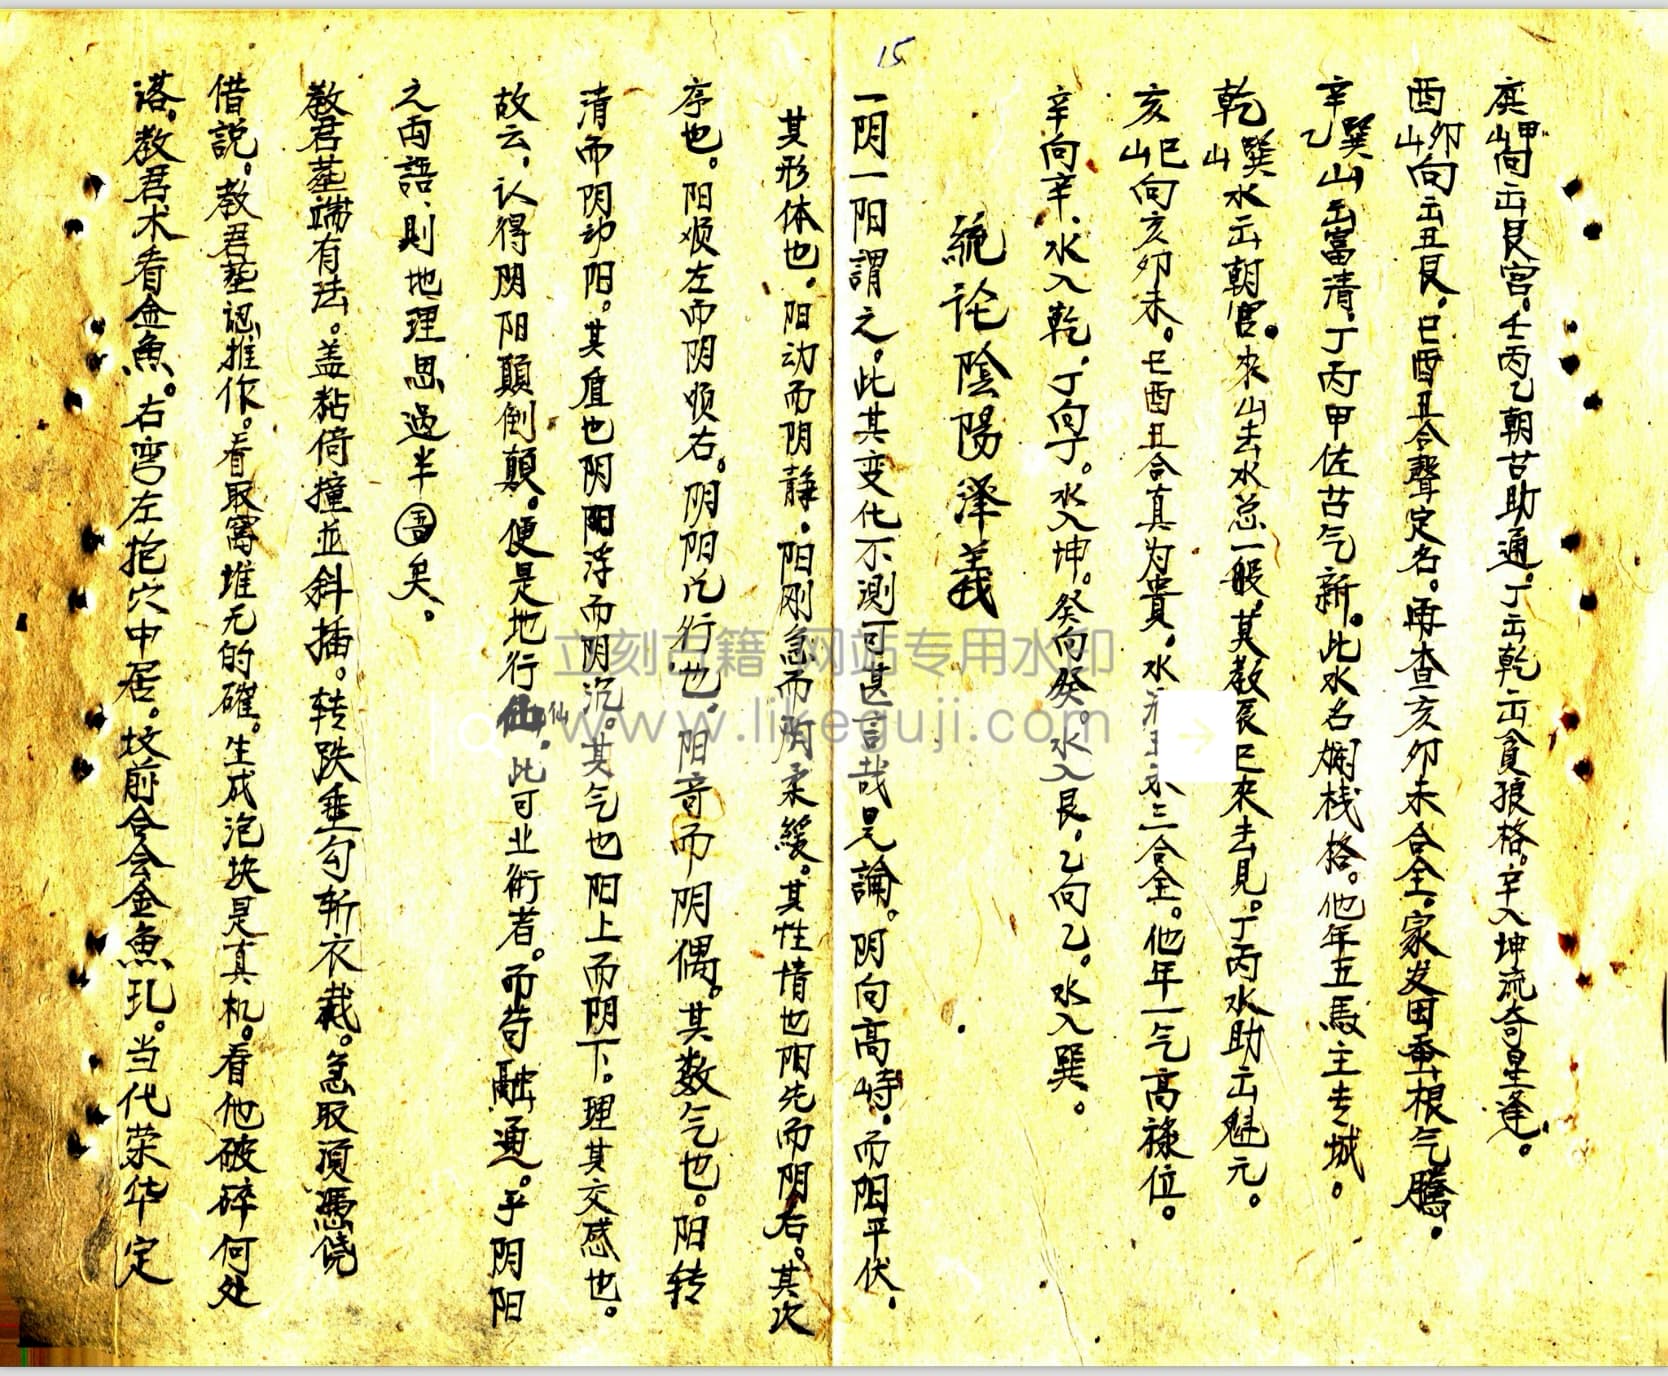 15
庚山甲向出艮宫。壬丙乙朝苔助通。丁出乾出貪狼格。辛入坤流奇星逢。
酉山卯向出丑艮。巳酉丑合聲定名。再查亥卯未合全。家发田蚕根气騰。
辛乙巽山出富清。丁丙甲佐苔气新。此水名栏栈格。他年五馬主专城。
乾山巽水出朝宫。來山去水总一般。莫教辰巳來去見。丁丙水助出魁元。
亥山巳向亥卯未。巳酉丑合真为貴。水三合全。他年一气高祿位。
辛向辛、水入乾。丁向丁。水入坤。癸向癸。水入艮。乙向乙。水入巽。
統论陰陽泽義
一阴一阳謂之。此其变化不測可甚言哉是論。阴向高峙。而阳平伏。
其形体也。阳动而阴静。阳刚急而阴柔緩。其性情也阳先而阴右。其次
序也。阳顺左而阴顺右。阴阳行也。阳奇而阴偶。其数气也。阳转
清而阴动阳。其盾也阴阳浮而阴沉。其气也阳上而阴下。理其交感也。
故云，认得阴阳顛倒顛。便是地行仙仙，此可业術者。而苟融通。乎阴阳
之两語、則地理思過半吾矣。
教君塟端有法。盖粘倚撞並斜插。转跌垂勾斩衣裁。急取須憑饶
借説。教君塟認推作。看取窩堆无的確。生成泡块是真机。看他破碎何处
落。教君术看金魚。右弯左抱穴中居。坟前合会金魚孔。当代荣华定
立刻古籍 网站专用水印
www.likeguji.com